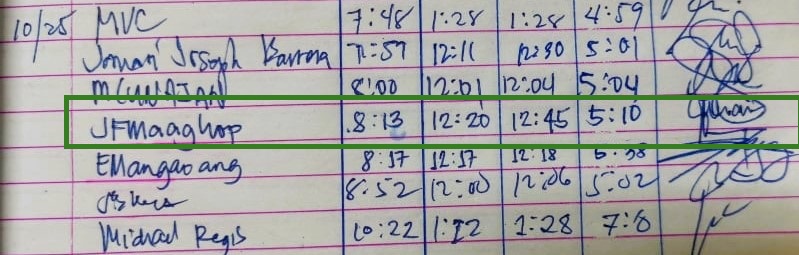 10/25 MVC 7:48 1:28 1:28 4:59
Jomari Joseph Barrera 7:57 12:11 12:30 5:01
8:00 12:01 12:04 5:04
JFMaaghop 8:13 12:20 12:45 5:10
EMangaoang 8:17 12:17 12:18 5:38
8:52 12:00 12:06 5:02
Michael Regis 10:22 1:12 1:28 7:8